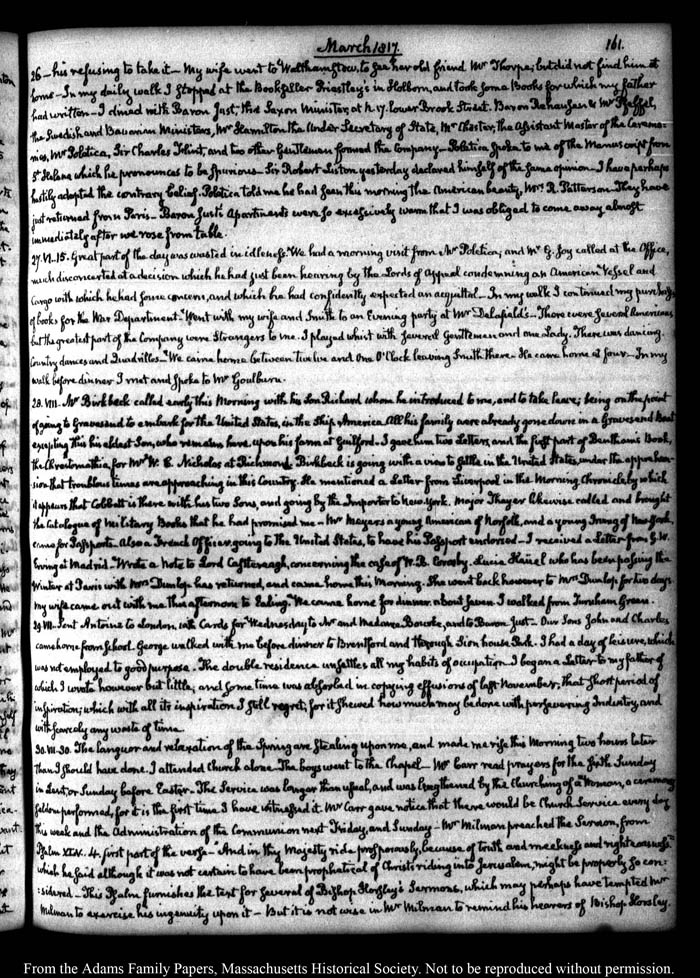 March 1817.
161.
26 — his refusing to take it — My wife went to Walthamstow, to see her old friend Mr Thorpe; but did not find him at
home — In my daily walk I stopped at the Bookseller Priestley's in Holborn, and took some Books for which my father
had written — I dined with Baron Just, the Saxon Minister, at N. 17. lower Brook Street. Baron Rehausen & Mr Pfeffel,
the Swedish and Bavarian Ministers, Mr Hamilton the Under Secretary of State, Mr Chester, the Assistant Master of the Ceremo-
nies, Mr Poletica, Sir Charles Flint, and two other Gentlemen formed the Company — Poletica spoke to me of the Manuscript from
St Helena which he pronounces to be spurious — Sir Robert Liston yesterday declared himself of the same opinion — I have perhaps
hastily adopted the contrary belief. Poletica told me he had seen this morning the American beauty, Mrs R. Patterson — They have
just returned from Paris — Baron Just's Apartments were so excessively warm that I was obliged to come away almost
immediately after we rose from table.
27. VI. 15. Great part of the day was wasted in idleness. We had a morning visit from Mr Poletica; and Mr G. Joy called at the Office,
much disconcerted at a decision which he had just been hearing by the Lords of Appeal condemning an American Vessel and
Cargo with which he had some concern, and which he had confidently expected an acquittal — In my walk I continued my purchases
of books for the War Department — Went with my wife and Smith to an Evening party at Mr Delafield's — There were several Americans
but the greatest part of the Company were Strangers to me. I played whist with several Gentlemen and one Lady. There was dancing.
Country dances and Quadrilles — We came home between twelve and One O'Clock leaving Smith there. He came home at four — In my
walk before dinner I met and spoke to Mr Goulburn.
28. VIII. Mr Birkbeck called early this Morning with his Son Richard whom he introduced to me, and to take leave; being on the point
of going to Gravesend to embark for the United States, in the Ship America. All his family were already gone down in a Gravesend Boat
excepting this his eldest Son, who remains here, upon his farm at Guilford. I gave him two Letters, and the first part of Bentham's Book,
the Chrestomathia, for Mr W. C. Nicholas at Richmond. Birkbeck is going with a view to settle in the United States, under the apprehen-
sion that troublous times are approaching in this Country. He mentioned a Letter from Liverpool in the Morning Chronicle by which
it appears that Cobbett is there with his two Sons, and going by the Importer to New York. Major Thayer likewise called and brought
the Catalogue of Military Books that he had promised me — Mr Meyers a young American of Norfolk, and a young Irving of New-York,
came for Passports. Also a French Officer going to the United States, to have his Passport endorsed — I received a Letter from G. W.
Erving at Madrid — Wrote a Note to Lord Castlereagh, concerning the case of W. B. Crosby. Lucia Häuel who has been passing the
Winter at Paris with Mrs Dunlop has returned, and came home this Morning. She went back however to Mrs Dunlop for two days
My wife came out with me this afternoon to Ealing. We came home for dinner about seven. I walked from Turnham Green.
29. VII. Sent Antoine to London with Cards for Wednesday to Mr and Madame Bourke, and to Baron Just — Our Sons John and Charles
came home from School. George walked with me before dinner to Brentford and through Sion house Park. I had a day of leisure, which
was not employed to good purpose. The double residence unsettles all my habits of occupation. I began a Letter to my father of
which I wrote however but little; and some time was absorbed in copying effusions of last November; that short period of
inspiration; which with all its inspiration I still regret; for it shewed how much may be done with persevering Industry, and
with scarcely any waste of time.
30. VII. 30. The languor and relaxation of the Spring are stealing upon me, and made me rise this Morning two hours later
than I should have done. I attended Church alone. The boys went to the Chapel — Mr Carr read prayers for the sixth Sunday
in Lent, or Sunday before Easter — The Service was longer than usual, and was lengthened by the churching of a Woman, a ceremony
seldom performed, for it is the first time I have witnessed it. Mr Carr gave notice that there would be Church Service every day
this week and the Administration of the Communion next Friday, and Sunday — Mr Milman preached the Sermon, from
Psalm XLV. 4. first part of the verse — "And in thy Majesty ride prosperously, because of truth and meekness and righteousness"
which he said although it was not certain to have been prophetical of Christ's riding into Jerusalem, might be properly so con:
:sidered — This Psalm furnishes the text for several of Bishop Horsley's Sermons, which may perhaps have tempted Mr
Milman to exercise his ingenuity upon it — But it is not wise in Mr Milman to remind his hearers of Bishop Horsley.
From the Adams Family Papers, Massachusetts Historical Society. Not to be reproduced without permission.